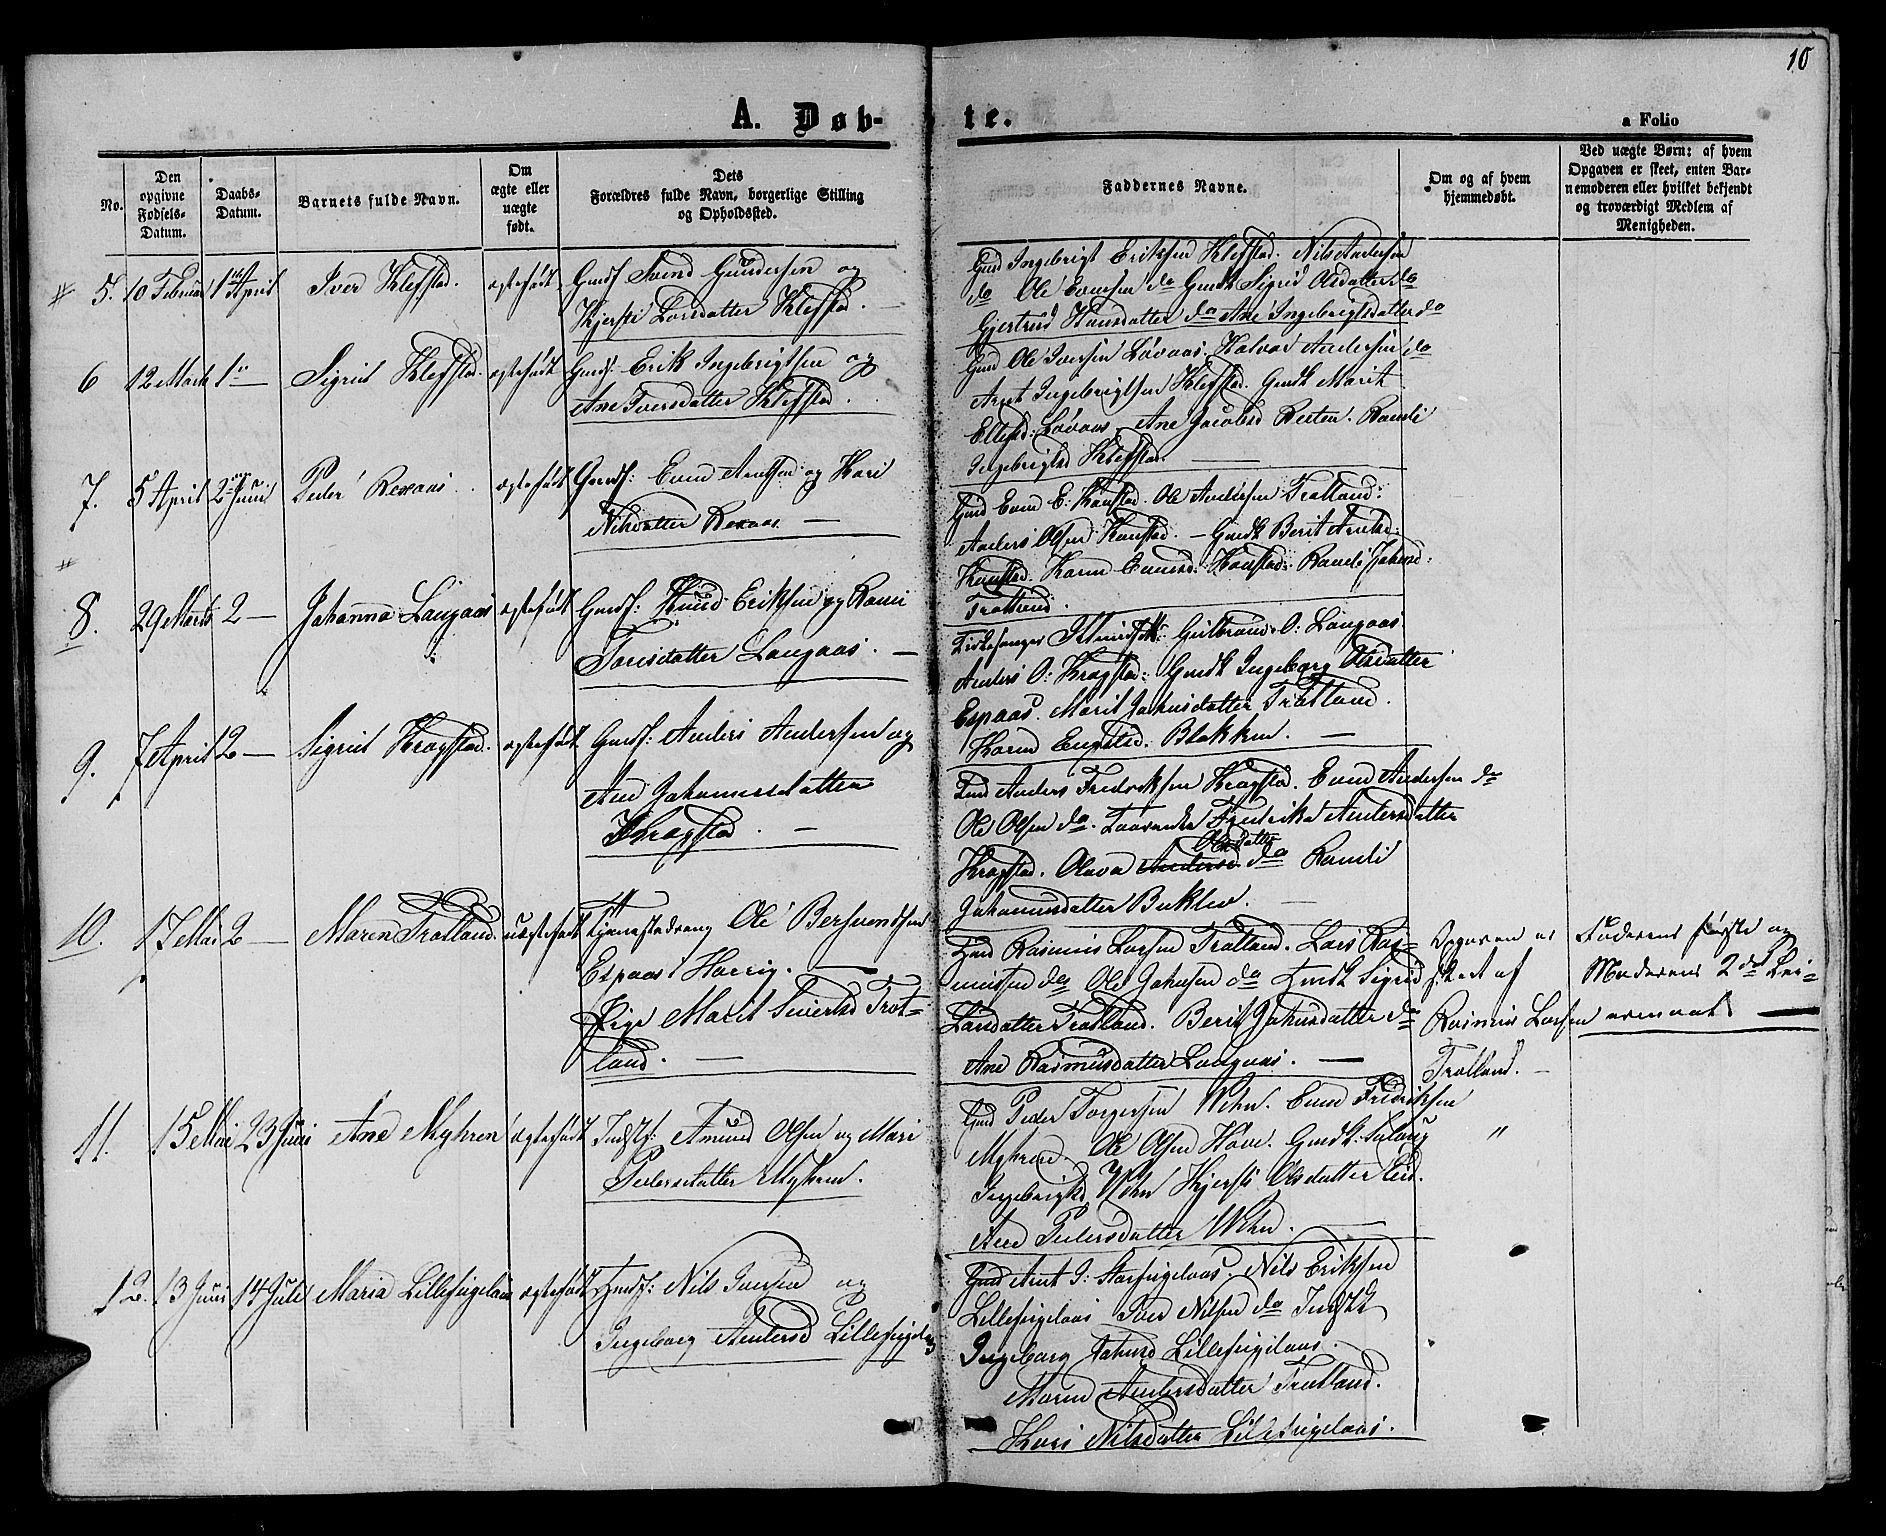 10
A. Døb-te.
a Folio
No.
Den opgivne Fødsels-Datum.
Daabs-Datum.
Barnets fulde Navn.
Om ægte eller uægte født.
Dets Forældres fulde Navn, borgerlige Stilling og Opholdsted.
Faddernes Navne.
Om og af hvem hjemmedøbt.
Ved uægte Børn: af hvem Opgaven er skeet, enten Barnemoderen eller hvilket bekjendt og troværdigt Medlem af Menigheden.
5. 10 Februar 1 April Iver Klefstad. ægtefødt Gmdf. Svend Gundersen og
Kjersti Larsdatter Klefstad.
Gmd Ingebrigt Eriksen Klefstad. Nils Andersen
do Ole Evensen do Gmdk Sigrid Olsdatter do
Gjertrud Hansdatter do Ane Ingebrigtsdatter do
6 12 Marts 1 — Sigrid Klefstad. ægtefødt Gmdf. Erik Ingebrigtsen og
Ane Iversdatter Klefstad.
Gmd Ole Iversen Løvaas. Halvor Andersen do
Arnt Ingebrigtsen Klefstad. Gmdk Marit
Ellefsd: Løvaas. Ane Jacobsd Resten. Randi
Ingebrigtsd Klefstad. —
7. 5 April 2 Juni Peder Rexaas. ægtefødt Gmdf: Even Arntsen og Kari
Nilsdatter Rexaas. —
Gmd Even E: Haustad. Ole Andersen Trotland:
Anders Olsen Haustad. — Gmdk Berit Arntsd:
Haustad. Karen Evensd: Haustad: Randi Johnsd:
Trotland.
8. 29 Marts 2 — Johanna Langaas ægtefødt Gmdf: Knud Eriksen og Randi
Tomsdatter Langaas. —
Kirkesanger Gulbrand O: Langaas.
Anders O: Kragstad: Gmdk Ingeborg Olsdatter
Espaas. Marit Johnsdatter Trotland.
Karen Blekken. —
9. 7 April 2 — Sigrid Kragstad. ægtefødt Gmdf: Anders Andersen og
Ane Johannesdatter
Kragstad. —
Gmd Anders Fredriksen Kragstad. Even Andersen do
Ole Olsen do. Fredrika Andersdatter
Olsdatter
Kragstad. Olava Andersd. do Randi
Johannesdatter Buklev.
10. 17 Mai 2 — Maren Trotland. uægtefødt Tjenestedreng Ole Bersvendsen
Espaas i Horrig. —
Pige Marit Sivertsd Trot-
land. —
Gmd Rasmus Larsen Trotland. Lars Ras-
mussen do Ole Johnsen do Gmdk Sigrid
Larsdatter Trotland. Berit Johnsdatter do
Ane Rasmusdatter Langaas. —
Opgaven er
skeet af
Rasmus Larsen
Trotland. —
Faderens første og
Moderens 2det Lei-
ermaal —
11. 15 Mai 23 Juni Ane Myhren ægtefødt Indstf: Amund Olsen og Mari
Pedersdatter Myhren.
Gmd Peder Torgersen Wehn. Even Fredriksen
Myhren. Ole Olsen Hove. Gmdk. Sulaug
Ingebrigtsd. Wehn Kjersti Olsdatter Eid.
Ane Pedersdatter Wehn. —
"
12. 13 Juni 14 Juli Maria Lillefugelaas ægtefødt Gmdf: Nils Iversen og
Ingeborg Andersd Lillefugelaas
Gmd Arnt I: Storfugelaas. Nils Eriksen
Lillefugelaas Iver Nilsen do Indstk
Ingeborg Johnsd Lillefugelaas.
Maren Andersdatter Trotland.
Kari Nilsdatter Lillefugelaas.